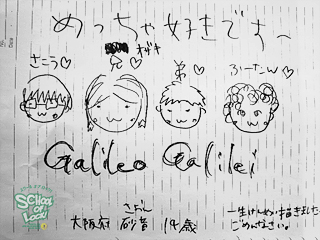 めっちゃ好きです〜
さこう♡
兄♡
弟♡
ふーたん♡
Galileo Galilei
SCHOOL OF LOCK!
大阪府 砂音 14歳
一生けんめい描きました
ごめんなさい。